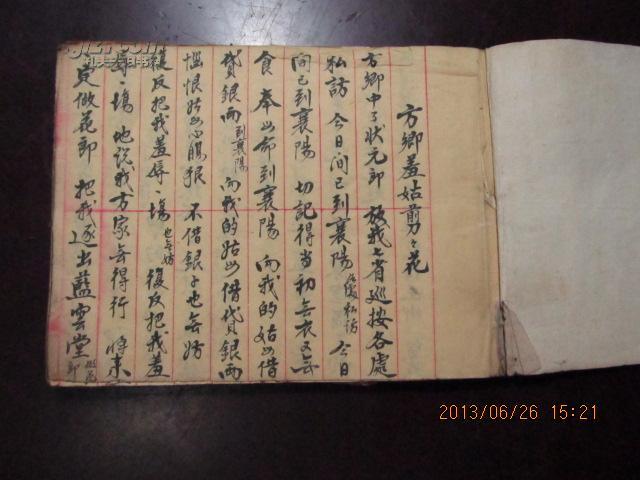 方卿羞姑剪々花
方卿中了狀元郎 放我七省巡按各處
私訪 今日間已到襄陽 各處私訪 今日
間已到襄陽 切記得當初無衣又無
食 奉母命到襄陽 向我的姑母借
貸銀兩 到襄陽 向我的姑母借貸銀兩
惱恨姑母心腸狠 不借銀子也無妨
復反把我羞辱一塲 也無妨 復反把我羞
辱一塲 他説我方家無得行 將來
定做花郎 把我逐出藍雲堂 做花郎
2013/06/26 15:21